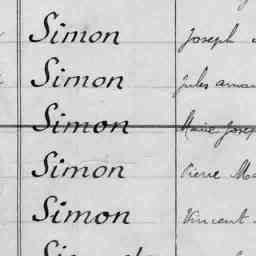 Simon Joseph
Simon Jules
Simon Marie
Simon Pierre
Simon Vincent